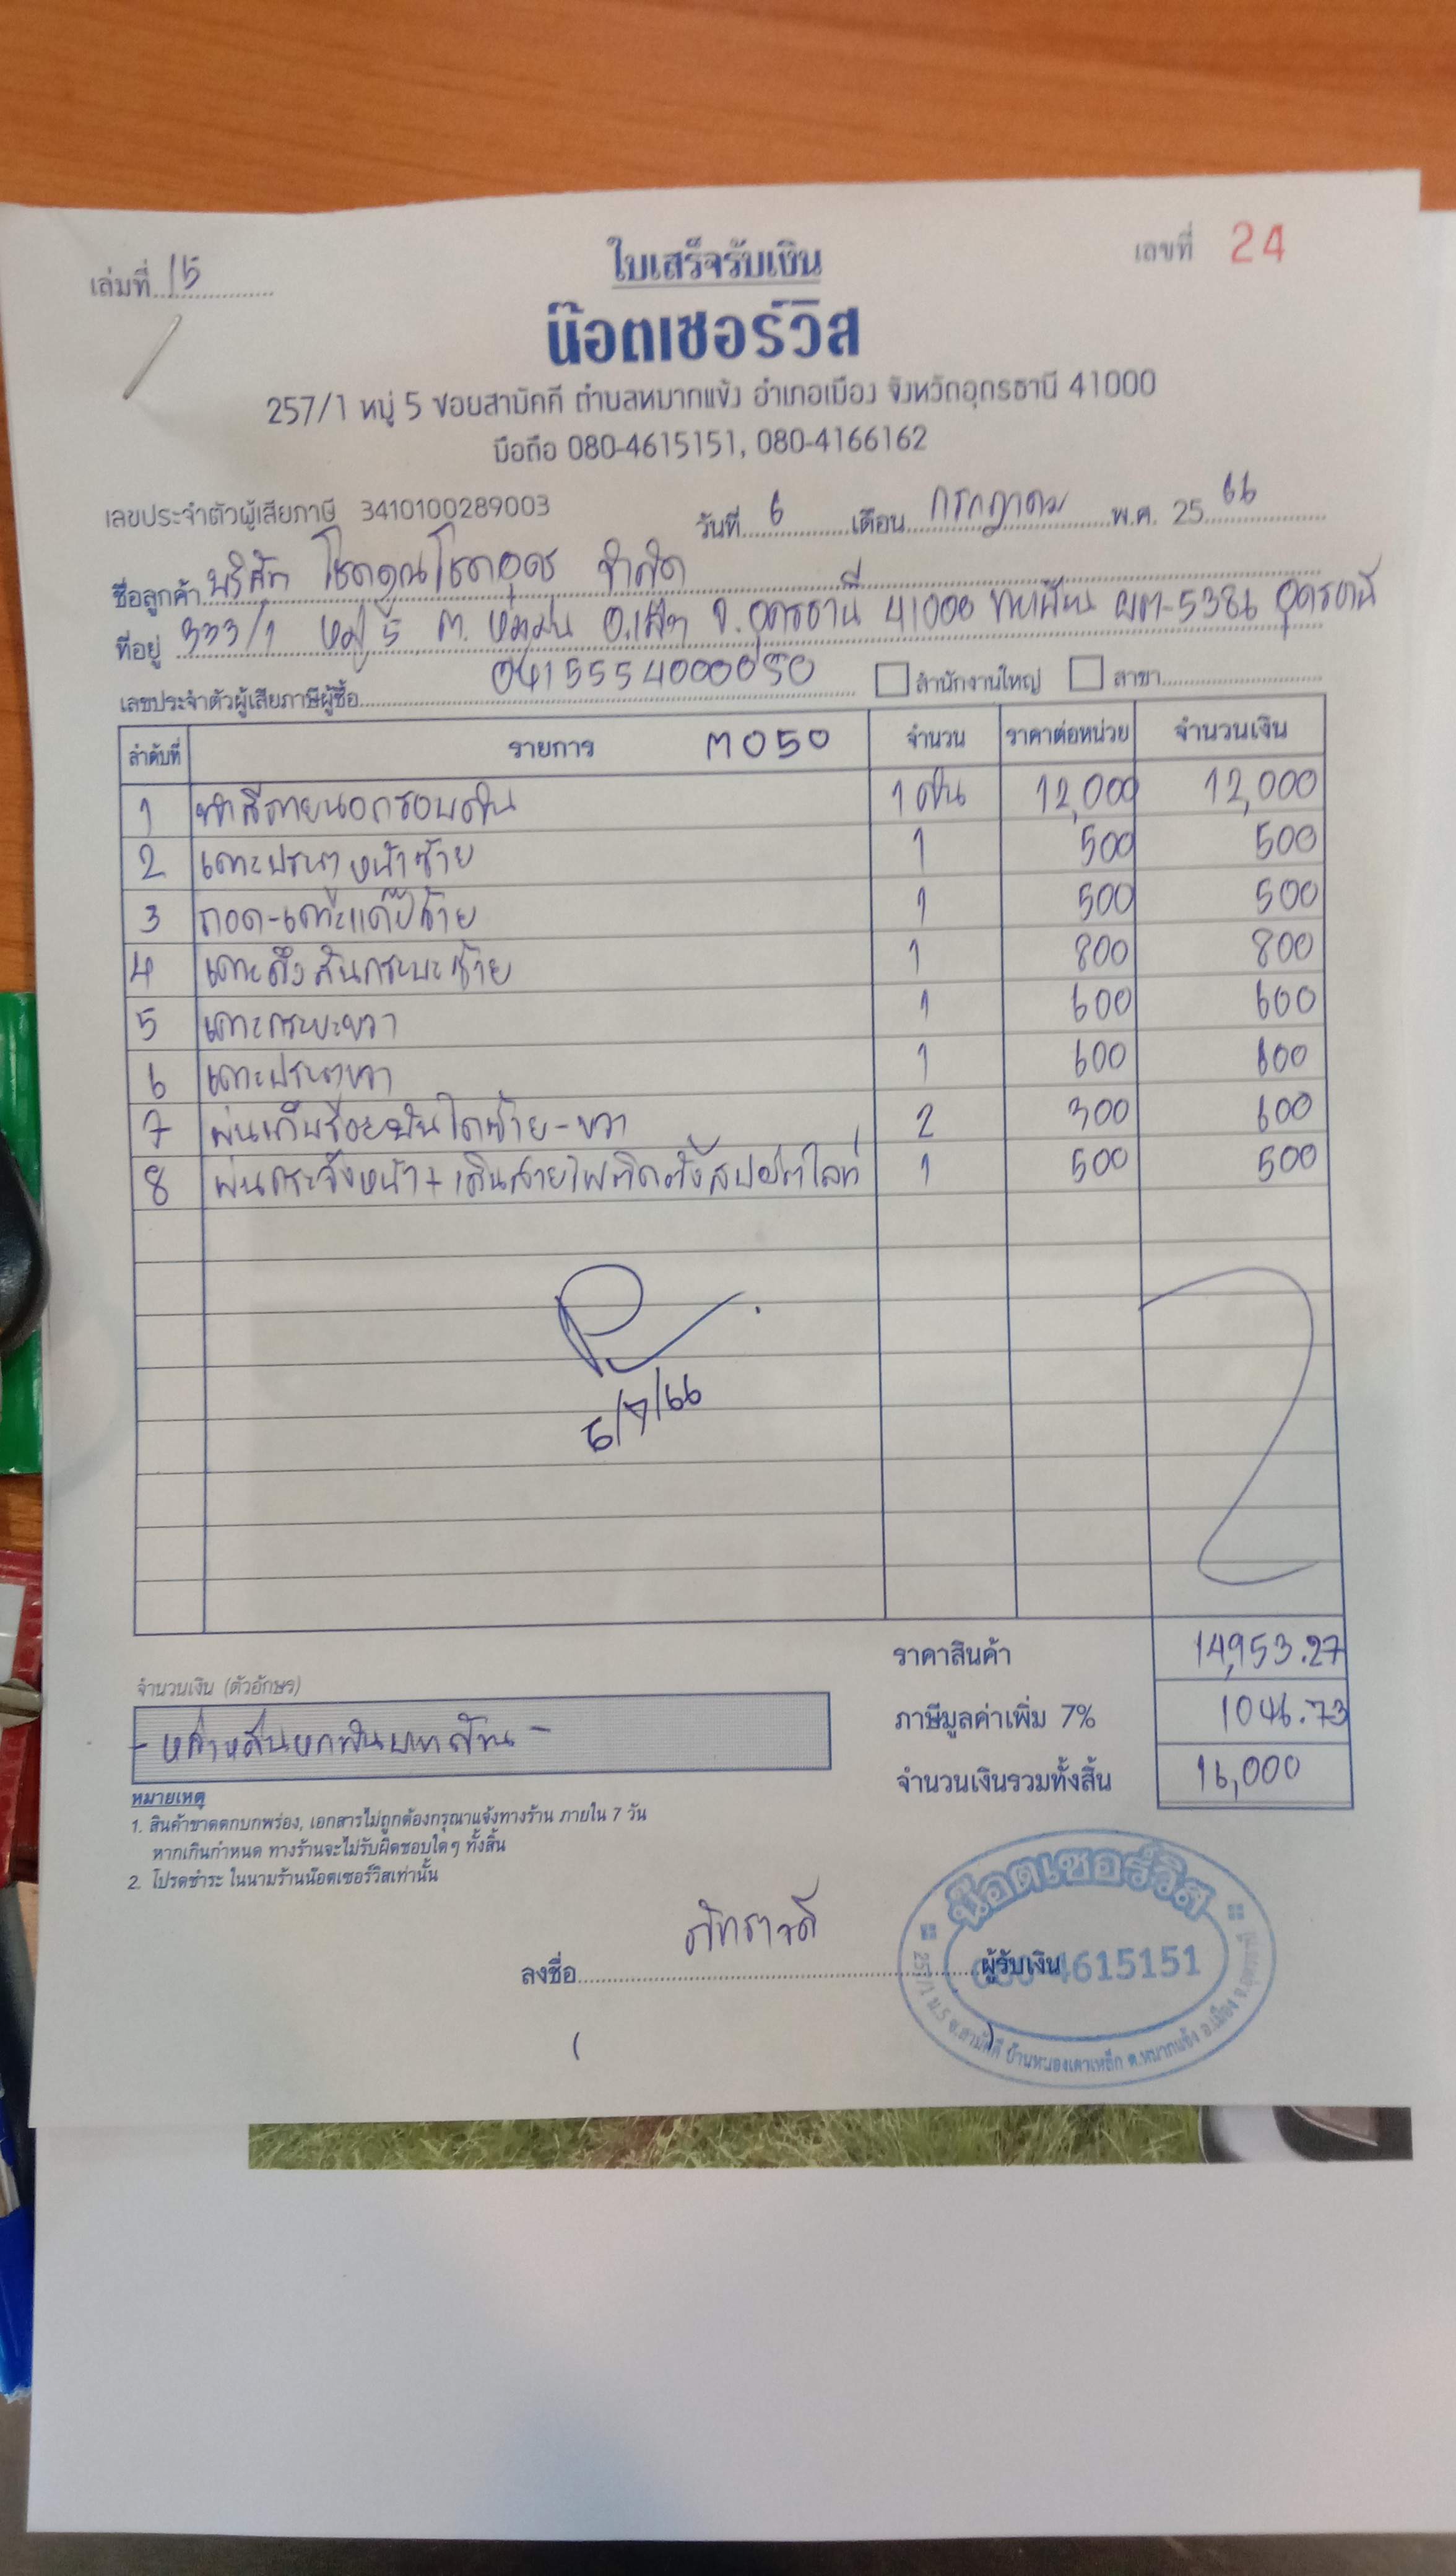 เล่มที่ 15
ใบเสร็จรับเงิน
เลขที่ 24
น๊อตเซอร์วิส
257/1 หมู่ 5 ซอยสามัคคี ตำบลหมากแข้ง อำเภอเมือง จังหวัดอุดรธานี 41000
มือถือ 080-4615151, 080-4166162
เลขประจำตัวผู้เสียภาษี 3410100289003
วันที่ 6 เดือน กรกฎาคม พ.ศ. 2566
ชื่อลูกค้า บริษัท โชคคูณโชคอุดร จำกัด
ที่อยู่ 333/1 หมู่ 5 ต. หมูม่น อ.เมือง จ.อุดรธานี 41000 ทะเบียน ผต-5386 อุดรธานี
เลขประจำตัวผู้เสียภาษีผู้ซื้อ 0415554000050 สำนักงานใหญ่ สาขา
ลำดับที่ รายการ MO50 จำนวน ราคาต่อหน่วย จำนวนเงิน
1 ทำสีภายนอกรอบคัน 1 คัน 12,000 12,000
2 เคาะประตูหน้าซ้าย 1 500 500
3 ถอด-เคาะแค๊ปซ้าย 1 500 500
4 เคาะดึงสันกระบะซ้าย 1 800 800
5 เคาะกระบะขวา 1 600 600
6 เคาะประตูขวา 1 600 600
7 พ่นเก็บรอยบันไดซ้าย-ขวา 2 300 600
8 พ่นกระจังหน้า+เดินสายไฟติดตั้งสปอร์ตไลท์ 1 500 500
6/7/66
ราคาสินค้า 14,953.27
ภาษีมูลค่าเพิ่ม 7% 1046.73
จำนวนเงินรวมทั้งสิ้น 16,000
จำนวนเงิน (ตัวอักษร)
- หนึ่งหมื่นหกพันบาทถ้วน -
หมายเหตุ
1. สินค้าขาดตกบกพร่อง, เอกสารไม่ถูกต้องกรุณาแจ้งทางร้าน ภายใน 7 วัน
หากเกินกำหนด ทางร้านจะไม่รับผิดชอบใดๆ ทั้งสิ้น
2. โปรดชำระ ในนามร้านน๊อตเซอร์วิสเท่านั้น
ลงชื่อ ภัทราวดี ผู้รับเงิน
น๊อตเซอร์วิส
080-4615151
257/1 ม.5 ซ.สามัคคี บ้านหนองเตาเหล็ก ต.หมากแข้ง อ.เมือง จ.อุดรธานี